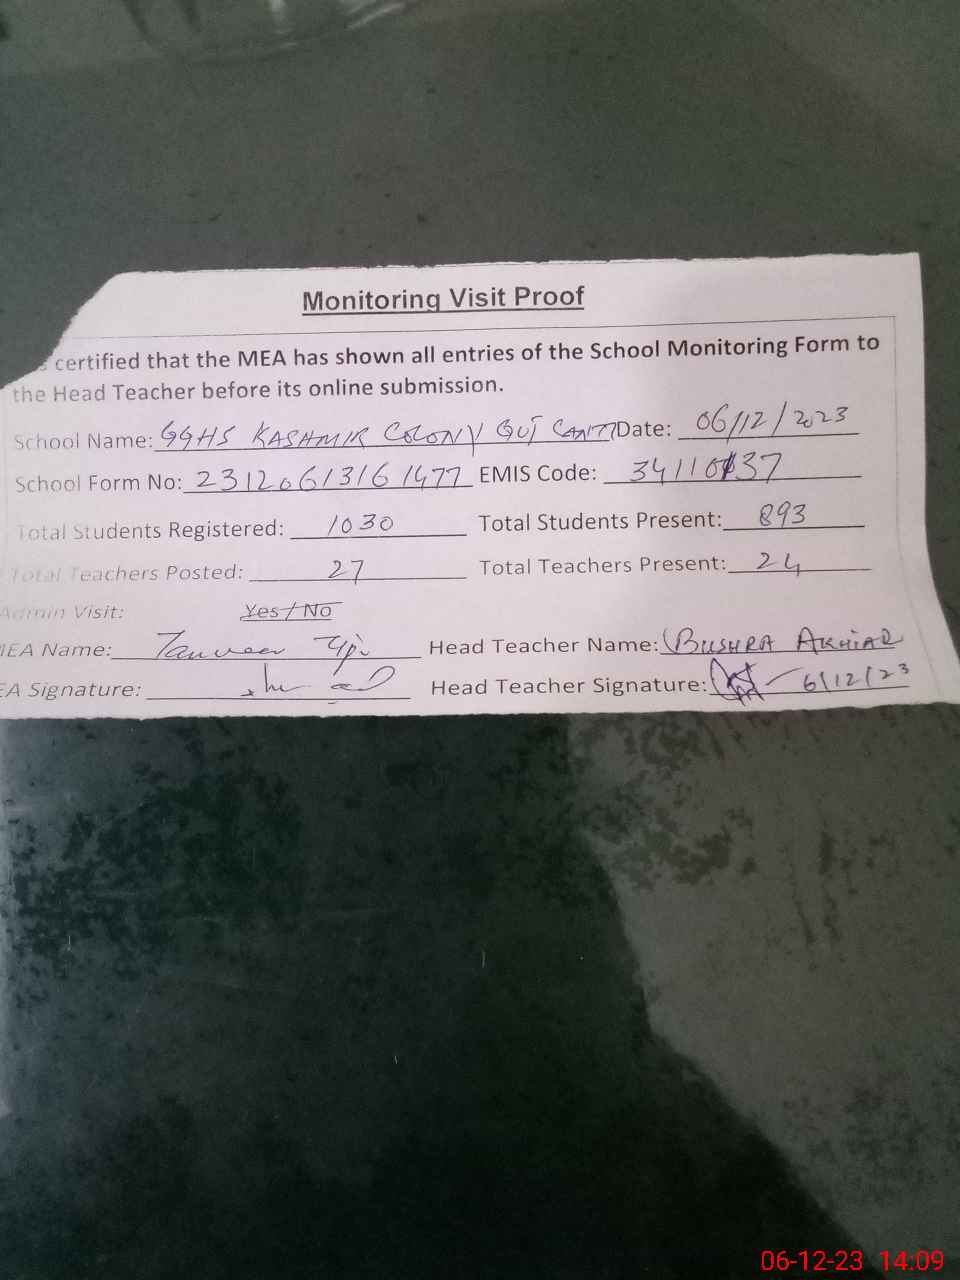 Monitoring Visit Proof
certified that the MEA has shown all entries of the School Monitoring Form to
the Head Teacher before its online submission.
School Name: GGHS KASHMIR COLONY GUJ CANTT Date: 06/12/2023
School Form No: 23120613161477 EMIS Code: 34110137
Total Students Registered: 1030 Total Students Present: 893
Total Teachers Posted: 27 Total Teachers Present: 24
Admin Visit: Yes/No
MEA Name: Tanveer Head Teacher Name: BUSHRA AKHTAR
EA Signature: Head Teacher Signature: 6/12/23
06-12-23 14:09